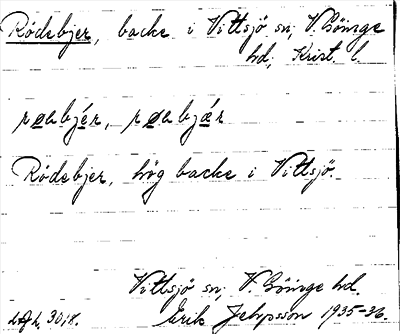 Rödebjer, backe i Vittsjö sn, V. Göinge
hd, Krist. l.
Rödebjer, hög backe i Vittsjö.
Vittsjö sn, V. Göinge hd.
Erik Jeppsson 1935-36.